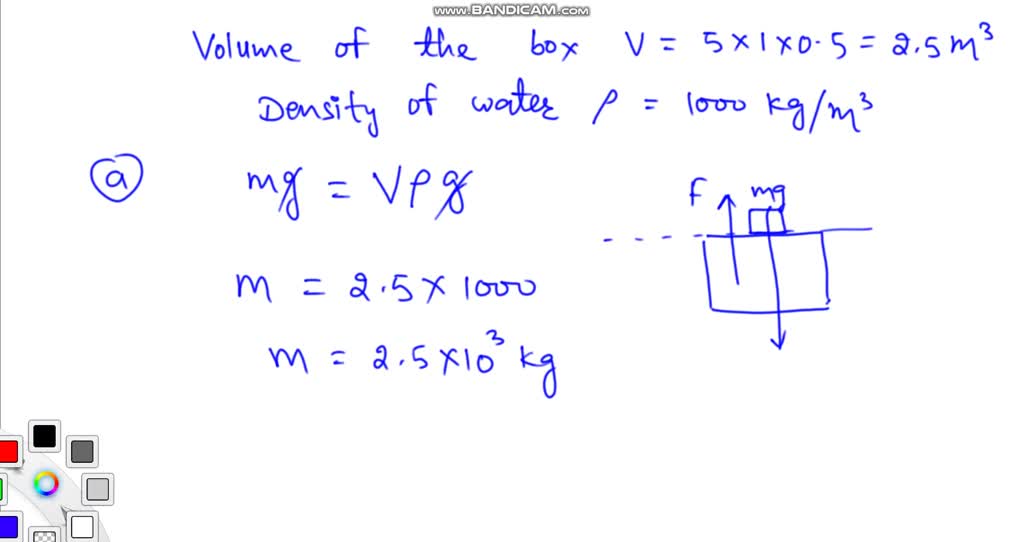 www.BANDICAM.com
Volume of the box V = 5 × 1 × 0.5 = 2.5 m³
Density of water ρ = 1000 kg/m³
(a) mg = Vρg
F mg
m = 2.5 × 1000
m = 2.5 × 10³ kg